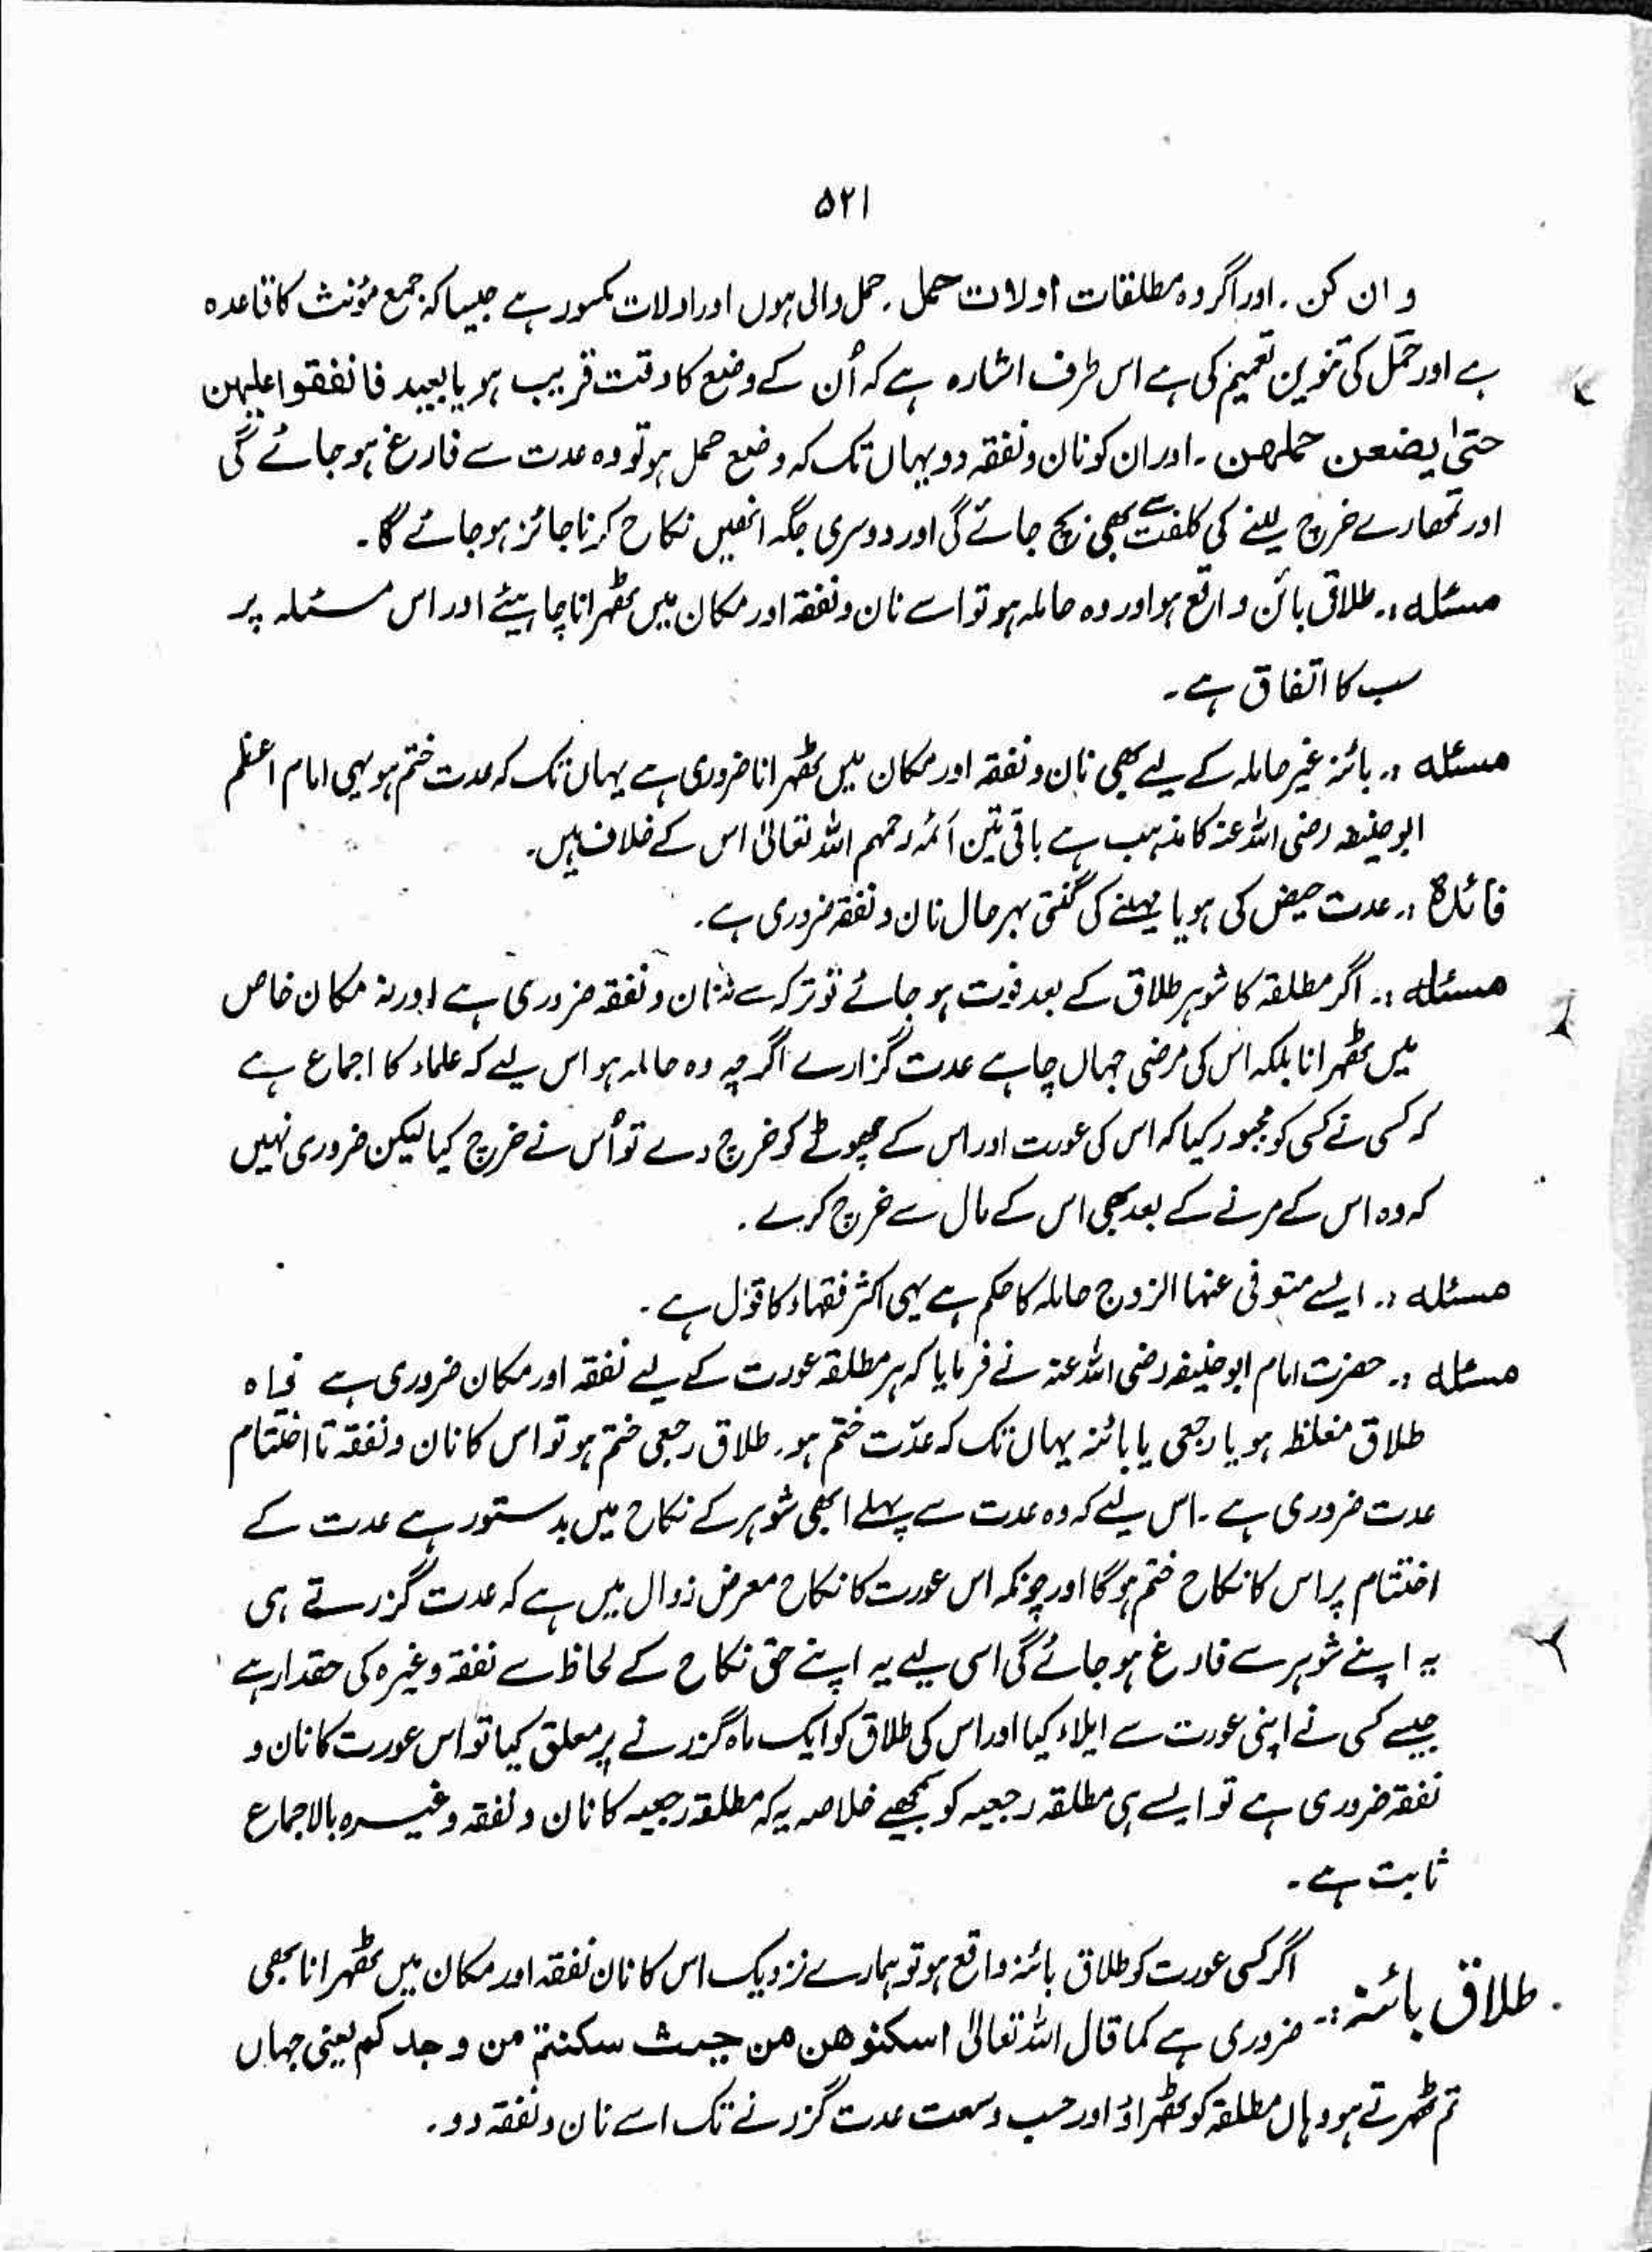 ۵۲۱
و ان کن ۔ اور اگر وہ مطلقات اولات حمل ۔ حمل والی ہوں اور اولات مکسور ہے جیسا کہ جمع مؤنث کا قاعدہ
ہے اور حمل کی تنوین تعمیم کی ہے اس طرف اشارہ ہے کہ اُن کے وضع کا وقت قریب ہو یا بعید فانفقوا علیہن
حتیٰ یضعن حملہن ۔ اور ان کو نان و نفقہ دو یہاں تک کہ وضع حمل ہو تو وہ عدت سے فارغ ہو جائے گی
اور تمھارے خرچ لینے کی کلفت سے بھی بچ جائے گی اور دوسری جگہ انھیں نکاح کرنا جائز ہو جائے گا ۔
مسئلہ :۔ طلاق بائن واقع ہو اور وہ حاملہ ہو تو اسے نان و نفقہ اور مکان میں ٹھہرانا چاہیئے اور اس مسئلہ پر
سب کا اتفاق ہے ۔
مسئلہ :۔ بائنہ غیر حاملہ کے لیے بھی نان و نفقہ اور مکان میں ٹھہرانا ضروری ہے یہاں تک کہ عدت ختم ہو یہی امام اعظم
ابوحنیفہ رضی اللہ عنہ کا مذہب ہے باقی تین آئمہ رحمہم اللہ تعالیٰ اس کے خلاف ہیں ۔
فائدہ :۔ عدت حیض کی ہو یا مہینے کی گنتی بہر حال نان و نفقہ ضروری ہے ۔
مسئلہ :۔ اگر مطلقہ کا شوہر طلاق کے بعد فوت ہو جائے تو ترکہ سے نہ نان و نفقہ ضروری ہے اور نہ مکان خاص
میں ٹھہرانا بلکہ اس کی مرضی جہاں چاہے عدت گزارے اگرچہ وہ حاملہ ہو اس لیے کہ علماء کا اجماع ہے
کہ کسی نے کسی کو مجبور کیا کہ اس کی عورت اور اس کے چھوٹے کو خرچ دے تو اُس نے خرچ کیا لیکن ضروری نہیں
کہ وہ اس کے مرنے کے بعد بھی اس کے مال سے خرچ کرے ۔
مسئلہ :۔ ایسے متوفی عنہا الزوج حاملہ کا حکم ہے یہی اکثر فقہاء کا قول ہے ۔
مسئلہ :۔ حضرت امام ابوحنیفہ رضی اللہ عنہ نے فرمایا کہ ہر مطلقہ عورت کے لیے نفقہ اور مکان ضروری ہے خواہ
طلاق مغلظ ہو یا رجعی یا بائنہ یہاں تک کہ عدّت ختم ہو ۔ طلاق رجعی ختم ہو تو اس کا نان و نفقہ تا اختتام
عدت ضروری ہے ۔ اس لیے کہ وہ عدت سے پہلے ابھی شوہر کے نکاح میں بدستور ہے عدت کے
اختتام پر اس کا نکاح ختم ہو گا اور چونکہ اس عورت کا نکاح معرض زوال میں ہے کہ عدت گزرتے ہی
یہ اپنے شوہر سے فارغ ہو جائے گی اسی لیے یہ اپنے حق نکاح کے لحاظ سے نفقہ وغیرہ کی حقدار ہے
جیسے کسی نے اپنی عورت سے ایلاء کیا اور اس کی طلاق کو ایک ماہ گزرنے پر معلق کیا تو اس عورت کا نان و
نفقہ ضروری ہے تو ایسے ہی مطلقہ رجعیہ کو سمجھیے خلاصہ یہ کہ مطلقہ رجعیہ کا نان و نفقہ وغیرہ بالاجماع
ثابت ہے ۔
طلاق بائنہ :۔ اگر کسی عورت کو طلاق بائنہ واقع ہو تو ہمارے نزدیک اس کا نان نفقہ اور مکان میں ٹھہرانا بھی
ضروری ہے کما قال اللہ تعالیٰ اسکنوھن من حیث سکنتم من وجد کم یعنی جہاں
تم ٹھہرتے ہو وہاں مطلقہ کو ٹھہراؤ اور حسب وسعت عدت گزرنے تک اسے نان و نفقہ دو ۔